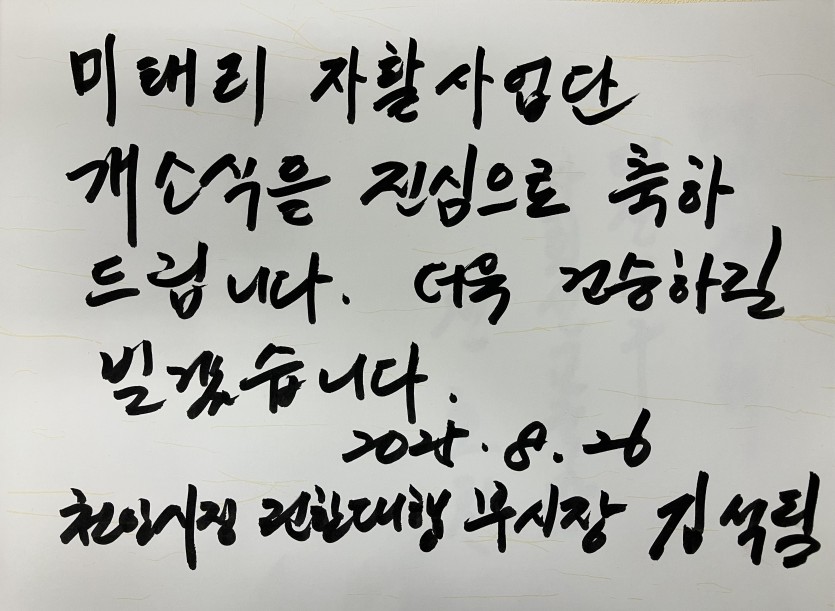 미태리 자활사업단
개소식을 진심으로 축하
드립니다. 더욱 건승하길
빌겠습니다.
2025. 8. 26
천안시장 권한대행 부시장 김석필